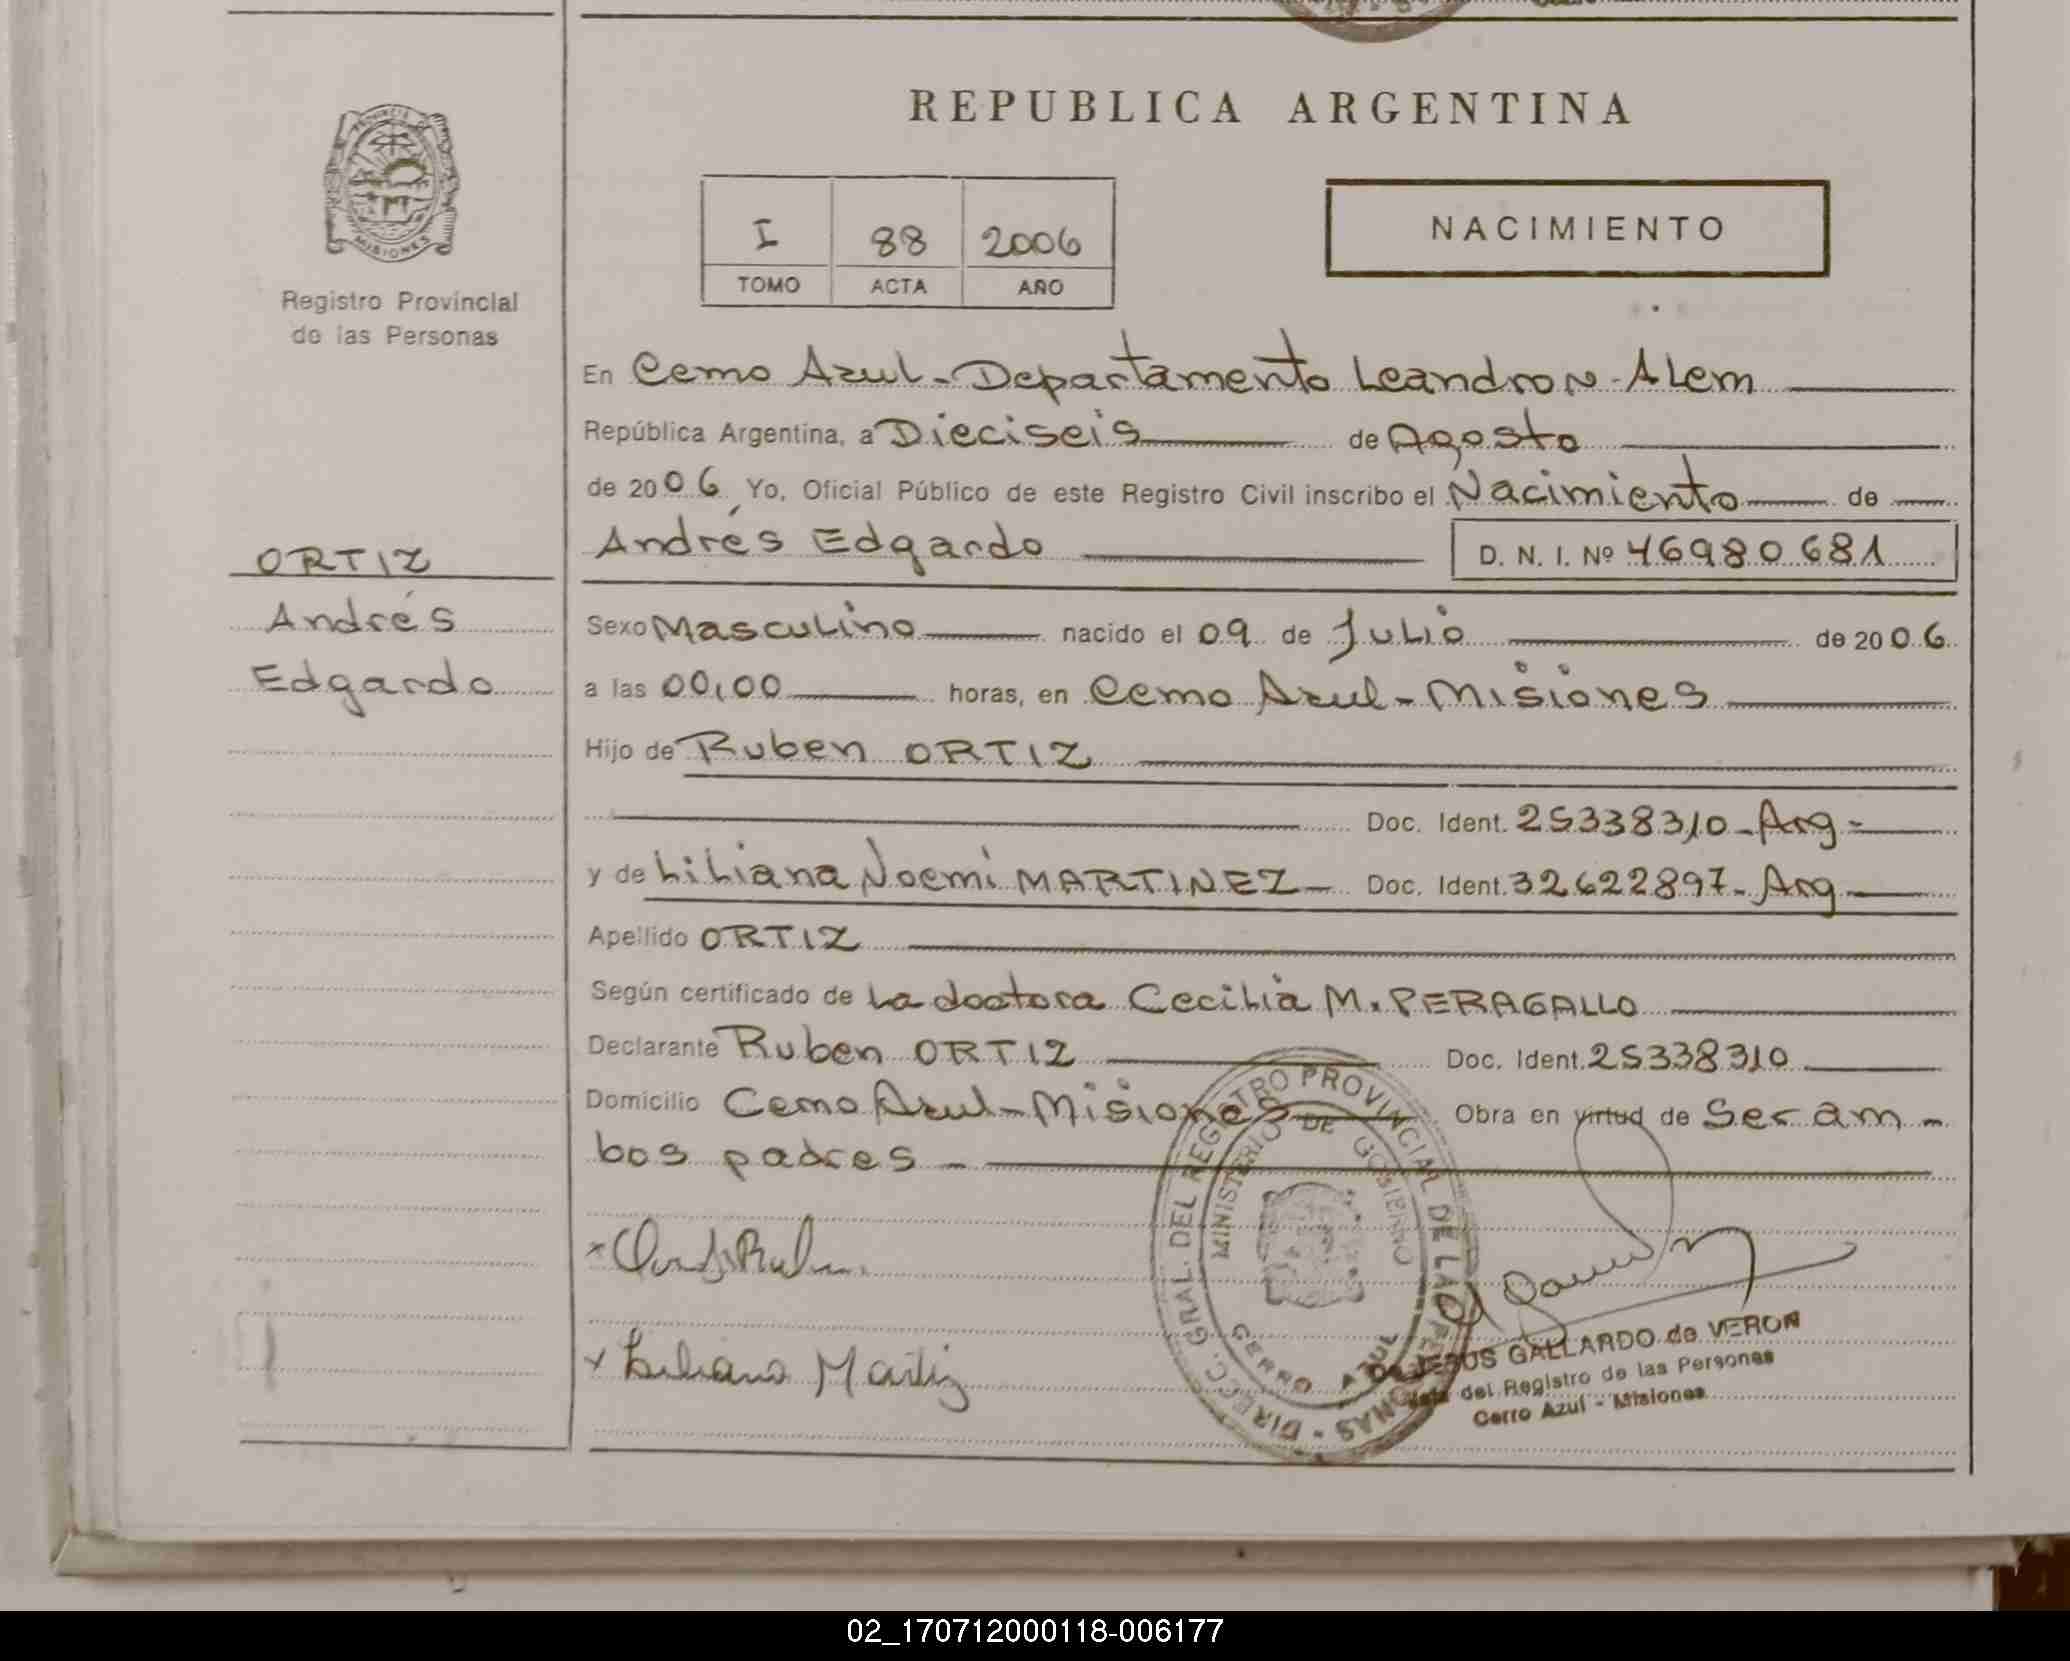 REPUBLICA ARGENTINA
PROVINCIA DE
MISIONES
Registro Provincial
de las Personas
I 88 2006
TOMO ACTA AÑO
NACIMIENTO
En Cerro Azul - Departamento Leandro N. Alem
República Argentina, a Dieciseis de Agosto
de 2006 Yo, Oficial Público de este Registro Civil inscribo el Nacimiento de
Andrés Edgardo D. N. I. Nº 46980681
ORTIZ
Andrés
Edgardo
Sexo Masculino nacido el 09 de Julio de 2006
a las 00,00 horas, en Cerro Azul - Misiones
Hijo de Ruben ORTIZ
Doc. Ident. 25338310 - Arg -
y de Liliana Noemí MARTINEZ Doc. Ident. 32622897 - Arg
Apellido ORTIZ
Según certificado de La doctora Cecilia M. PERAGALLO
Declarante Ruben ORTIZ Doc. Ident. 25338310
Domicilio Cerro Azul - Misiones Obra en virtud de Ser am -
bos padres -
x Ruben
x Liliana Martinez
DIRECC. GRAL. DEL REGISTRO PROVINCIAL DE LAS PERSONAS -
MINISTERIO DE GOBIERNO
CERRO AZUL
JESUS GALLARDO de VERON
del Registro de las Personas
Cerro Azul - Misiones
02_170712000118-006177